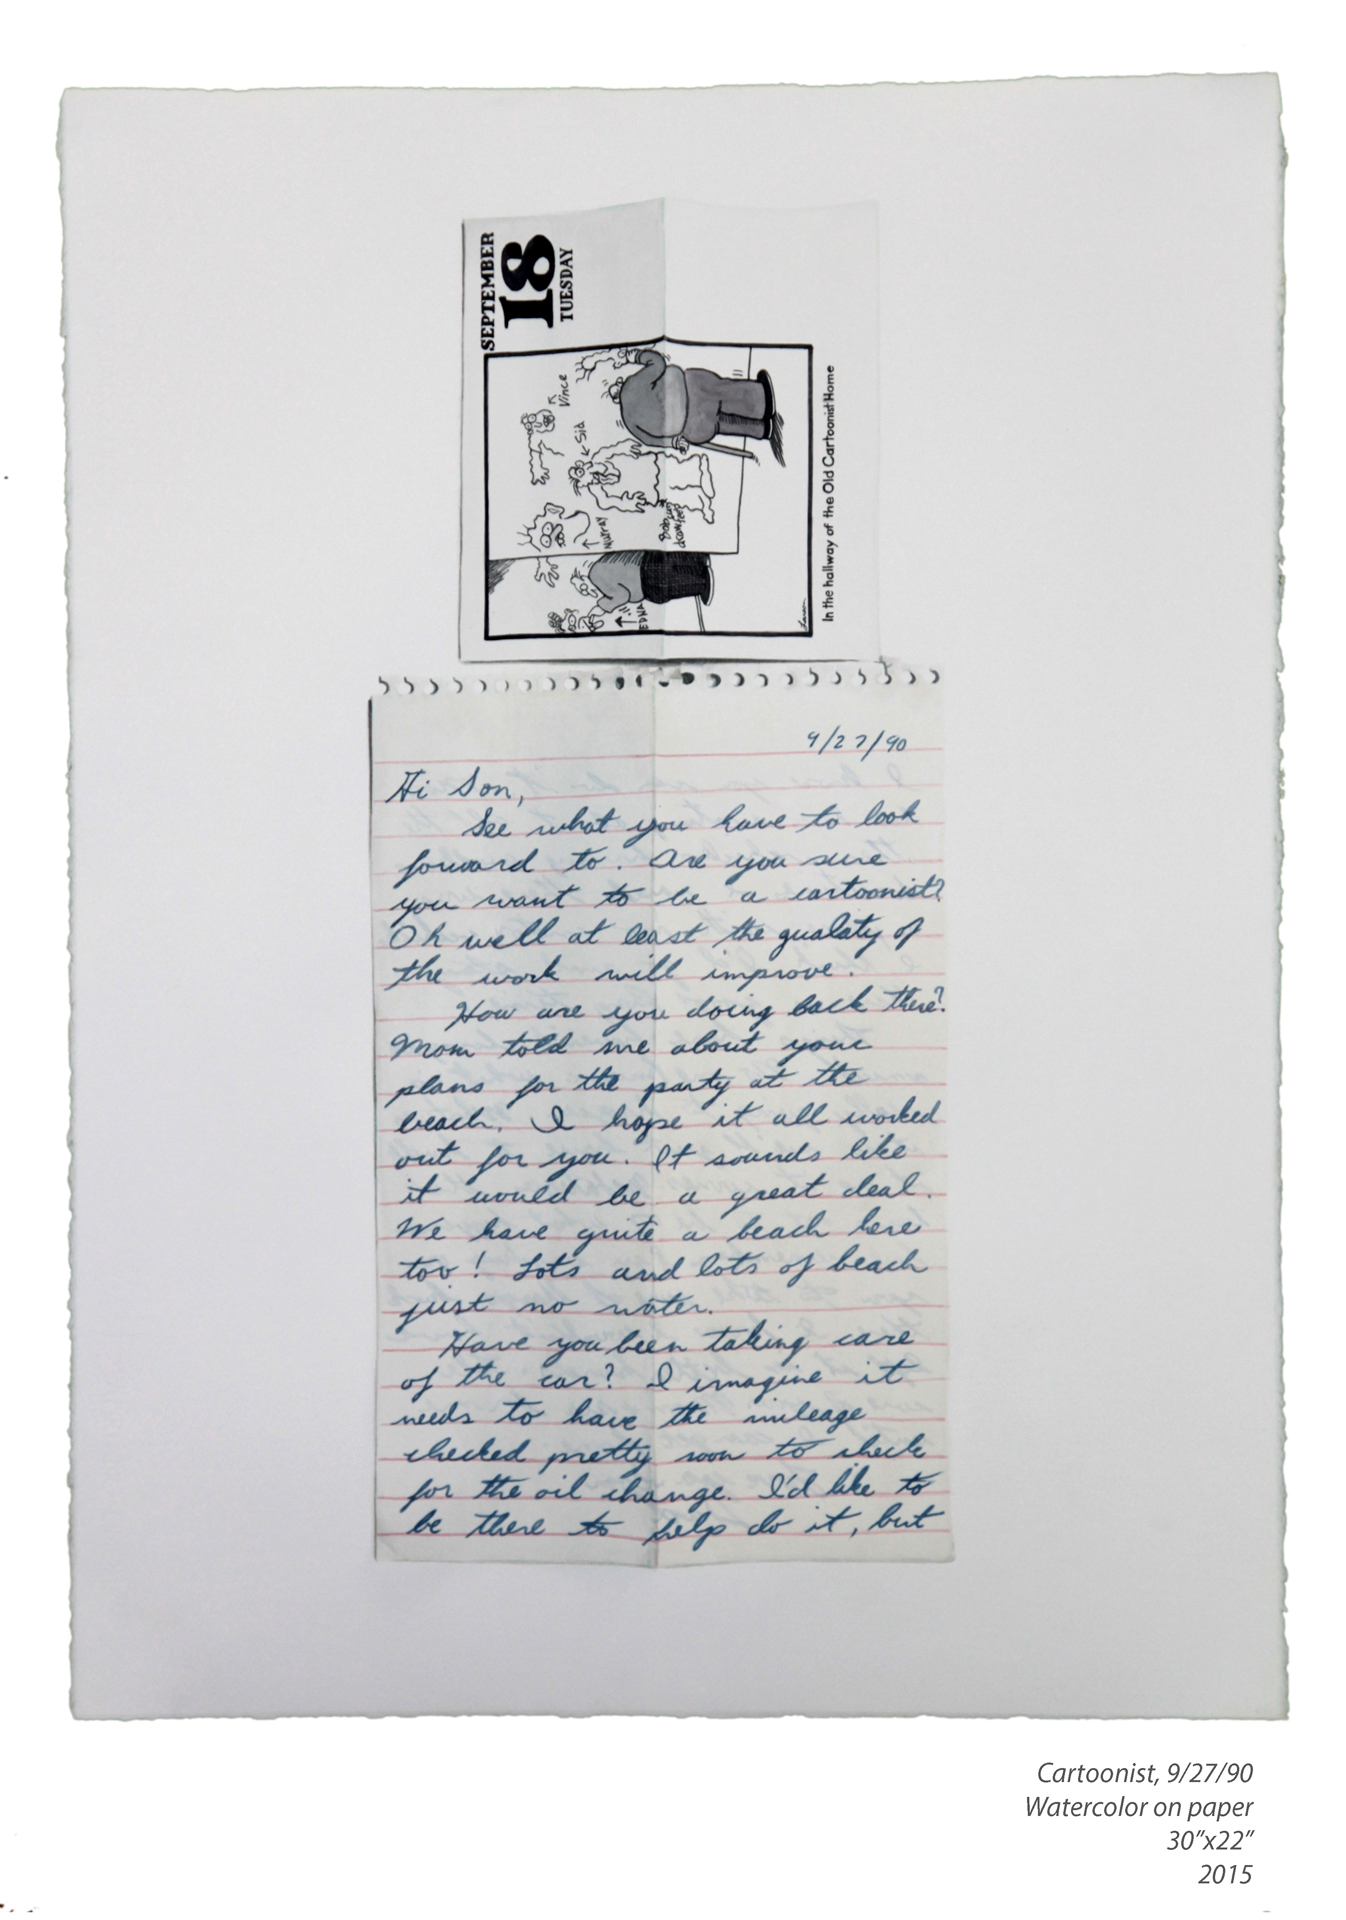 SEPTEMBER
18
TUESDAY
Vince
Sid
Murray
Bob
EDNA
Larson
In the hallway of the Old Cartoonist Home
9/27/90
Hi Son,
See what you have to look
forward to. Are you sure
you want to be a cartoonist?
Oh well at least the qualaty of
the work will improve.
How are you doing back there?
Mom told me about your
plans for the party at the
beach. I hope it all worked
out for you. It sounds like
it would be a great deal.
We have quite a beach here
too! Lots and lots of beach
just no water.
Have you been taking care
of the car? I imagine it
needs to have the mileage
checked pretty soon to check
for the oil change. I'd like to
be there to help do it, but
Cartoonist, 9/27/90
Watercolor on paper
30"x22"
2015